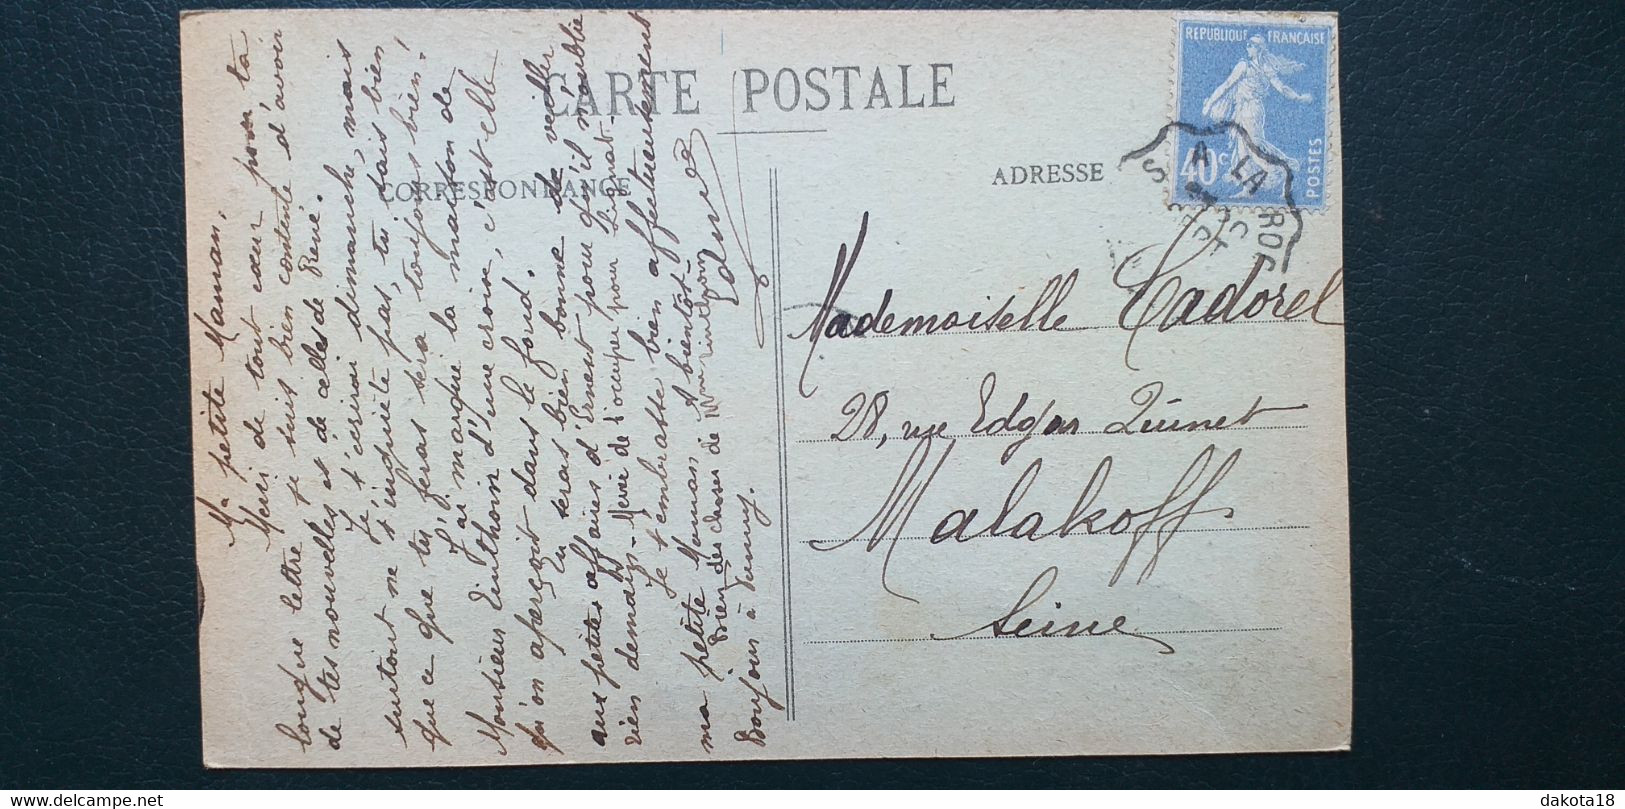 CARTE POSTALE
CORRESPONDANCE
ADRESSE
REPUBLIQUE FRANÇAISE
40c
POSTES
A LA ROC
Ma petite Maman,
Merci de tout cœur pour ta
longue lettre je suis bien contente d'avoir
de tes nouvelles et de celles de René.
Je t'écrirai dimanche, mais
surtout ne t'inquiète pas, tu sais bien
que ce que tu feras sera toujours bien!
J'ai marqué la maison de
Monsieur d'une croix, c'est elle
qu'on aperçoit dans le fond.
Tu seras bien bonne de veiller
aux petites affaires d'Ernest pour qu'il n'oublie
rien demain - Merci de t'occuper pour
Je t'embrasse bien affectueusement
ma petite Maman A bientôt
Bien des choses de
Bonjour à
Mademoiselle Cadorel
28, rue Edgar Quinet
Malakoff
Seine
dakota18